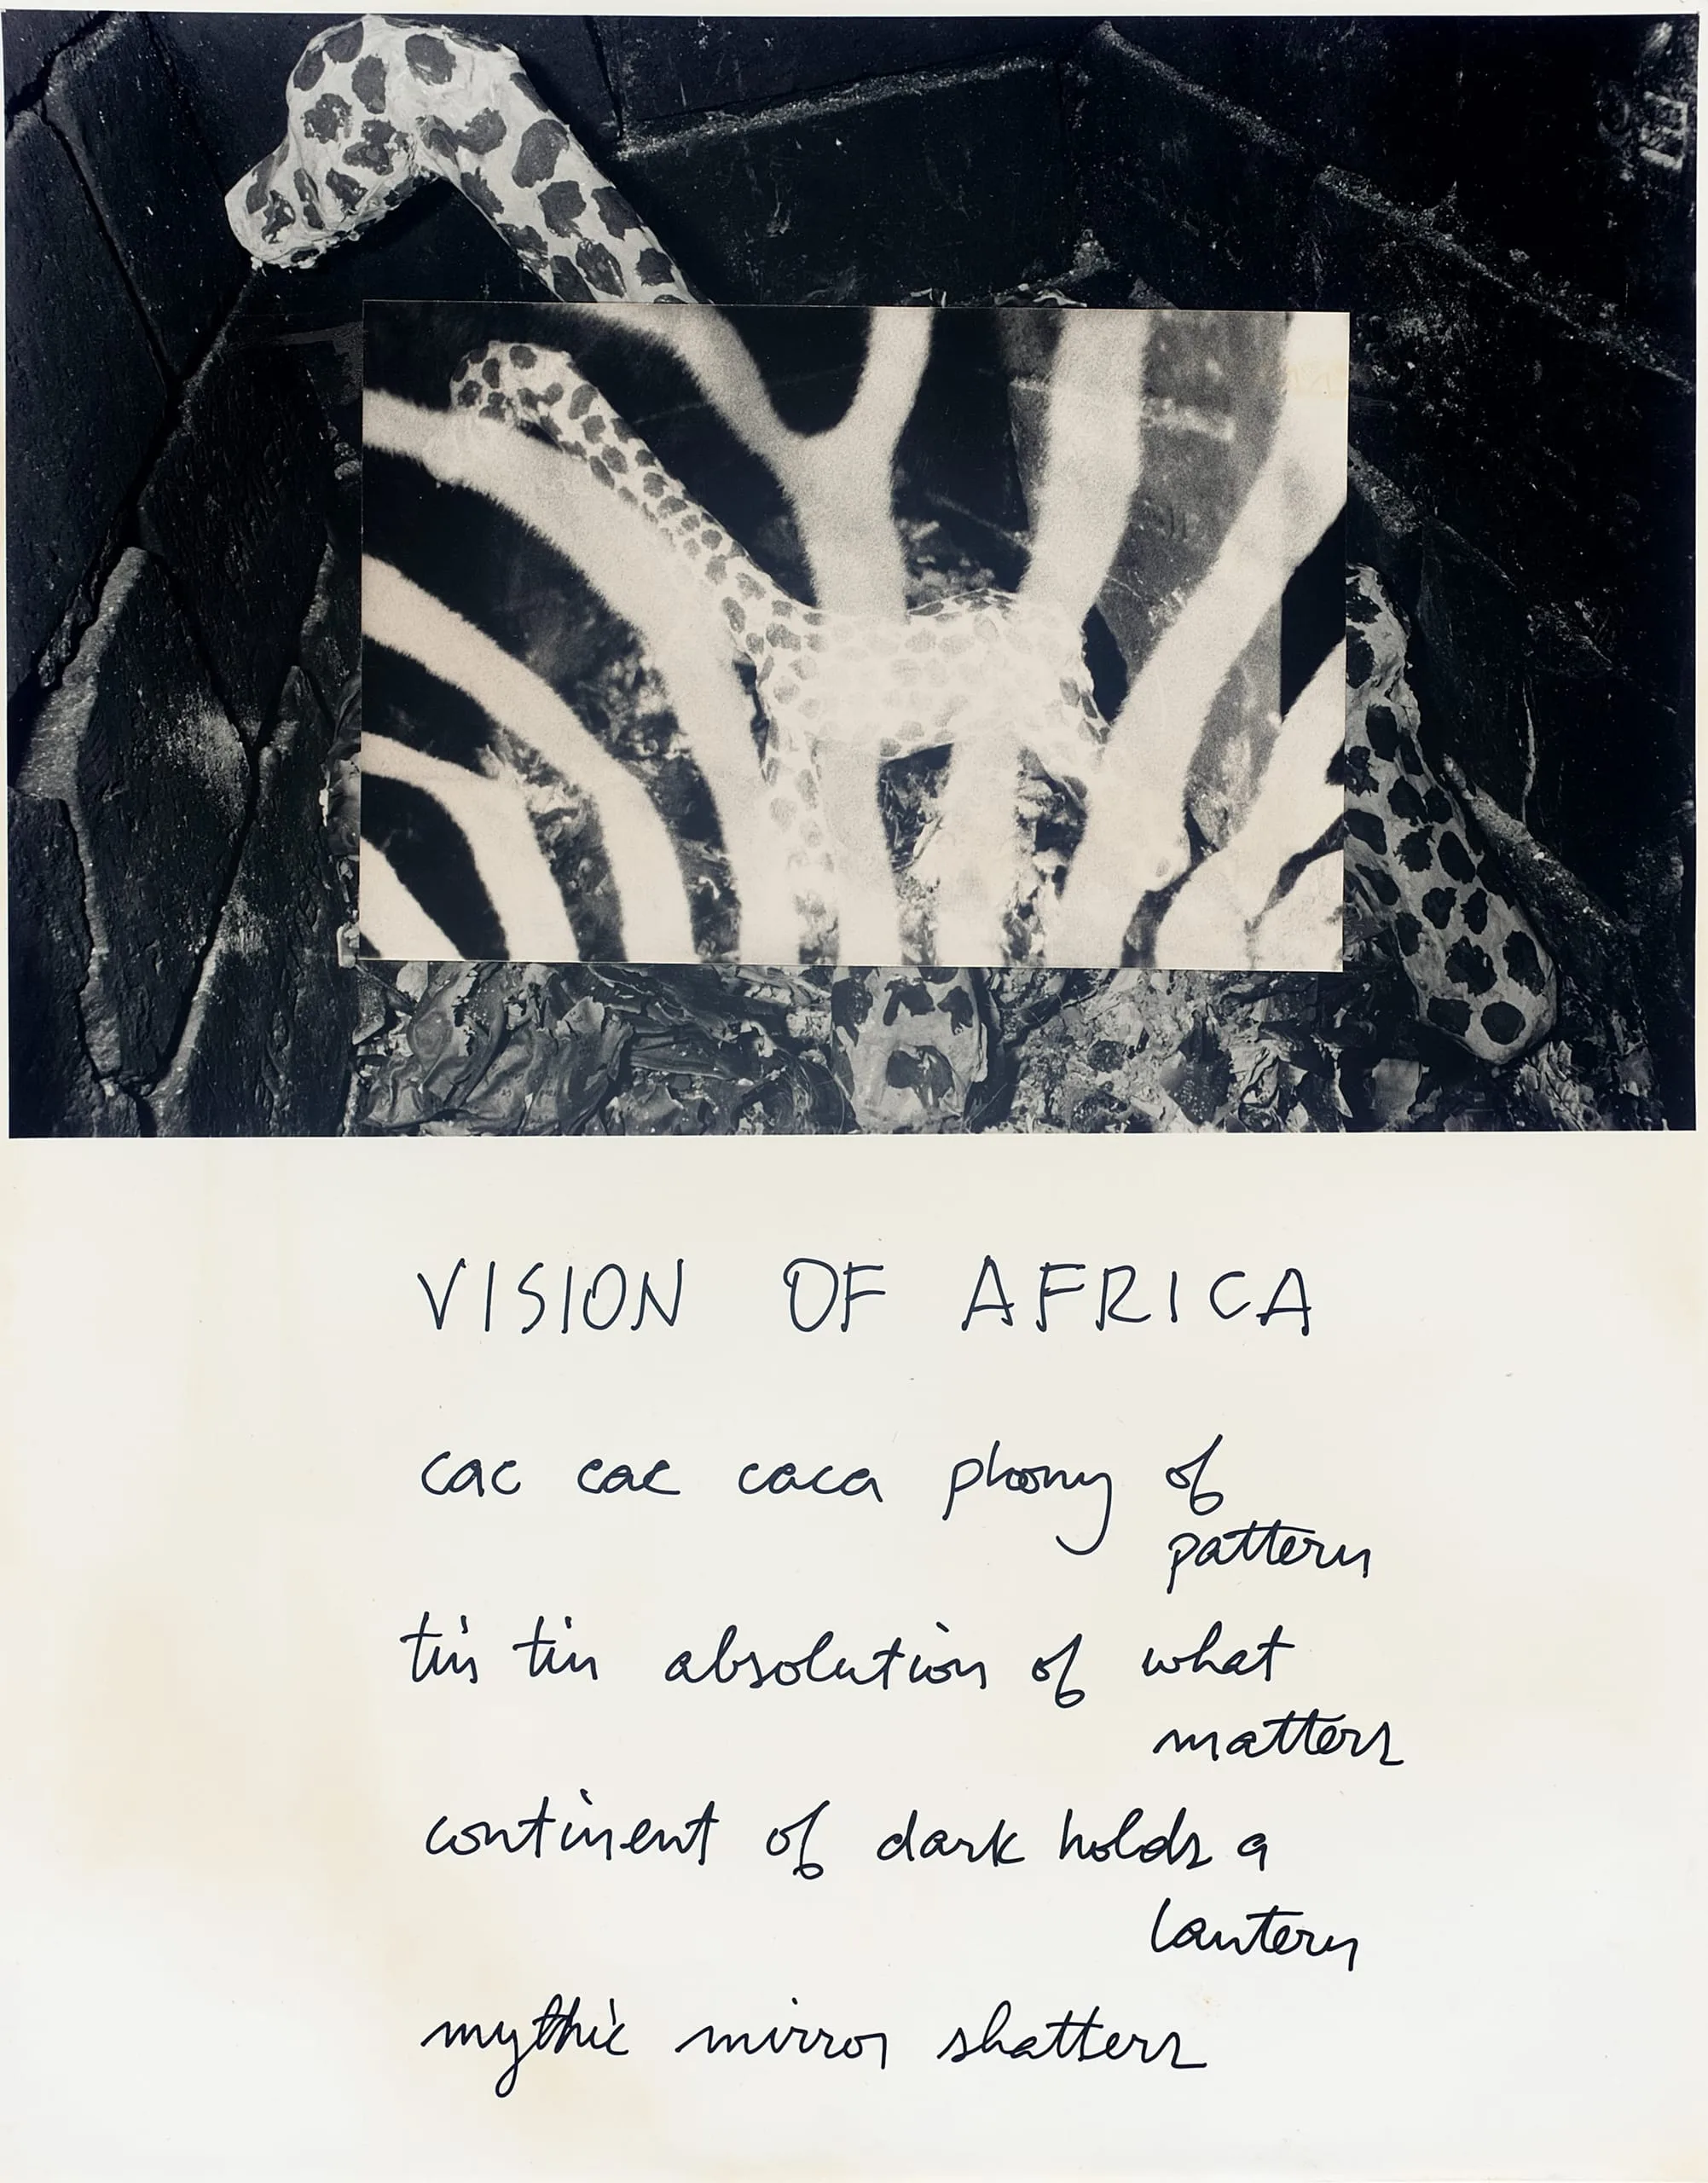 VISION OF AFRICA
cac cac caca phony of
pattern
tin tin absolution of what
matters
continent of dark holds a
lantern
mythic mirror shatters